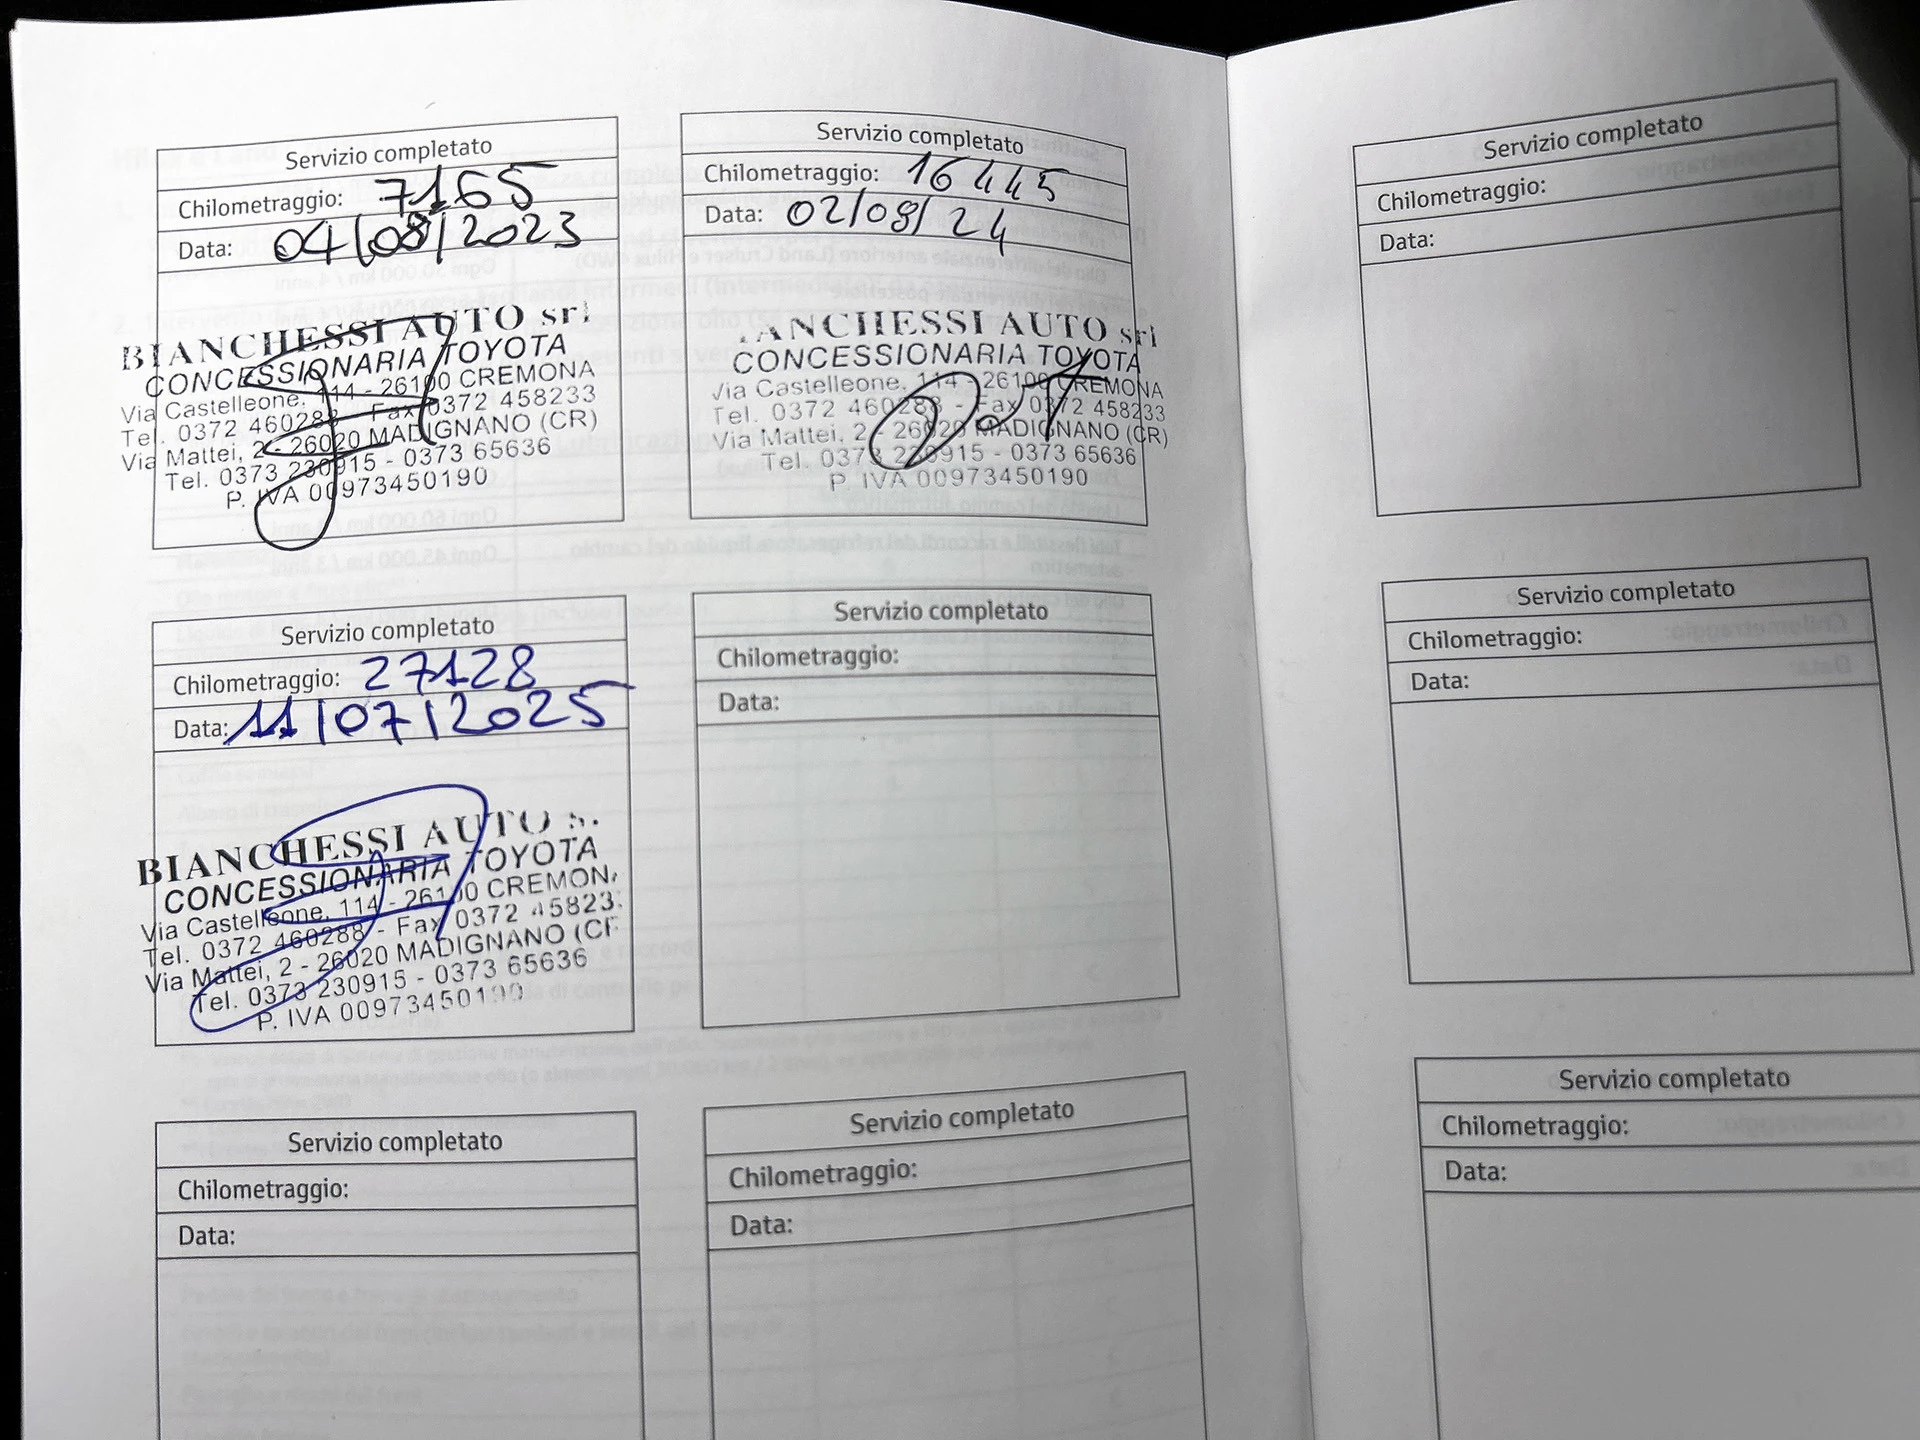 Servizio completato
Chilometraggio: 7165
Data: 04/08/2023
BIANCHESSI AUTO srl
CONCESSIONARIA TOYOTA
Via Castelleone, 114 - 26100 CREMONA
Tel. 0372 460288 - Fax 0372 458233
Via Mattei, 2 - 26020 MADIGNANO (CR)
Tel. 0373 230915 - 0373 65636
P. IVA 00973450190
Servizio completato
Chilometraggio: 16445
Data: 02/08/24
ANCHESSI AUTO srl
CONCESSIONARIA TOYOTA
Via Castelleone, 114 - 26100 CREMONA
Tel. 0372 460288 - Fax 0372 458233
Via Mattei, 2 - 26020 MADIGNANO (CR)
Tel. 0373 230915 - 0373 65636
P. IVA 00973450190
Servizio completato
Chilometraggio: 27128
Data: 11/07/2025
BIANCHESSI AUTO
CONCESSIONARIA TOYOTA
Via Castelleone, 114 - 26100 CREMON
Tel. 0372 460288 - Fax 0372 45823
Via Mattei, 2 - 26020 MADIGNANO (CR
Tel. 0373 230915 - 0373 65636
P. IVA 00973450190
Servizio completato
Chilometraggio:
Data:
Servizio completato
Chilometraggio:
Data:
Servizio completato
Chilometraggio:
Data:
Servizio completato
Chilometraggio:
Data:
Servizio completato
Chilometraggio:
Data:
Servizio completato
Chilometraggio:
Data: